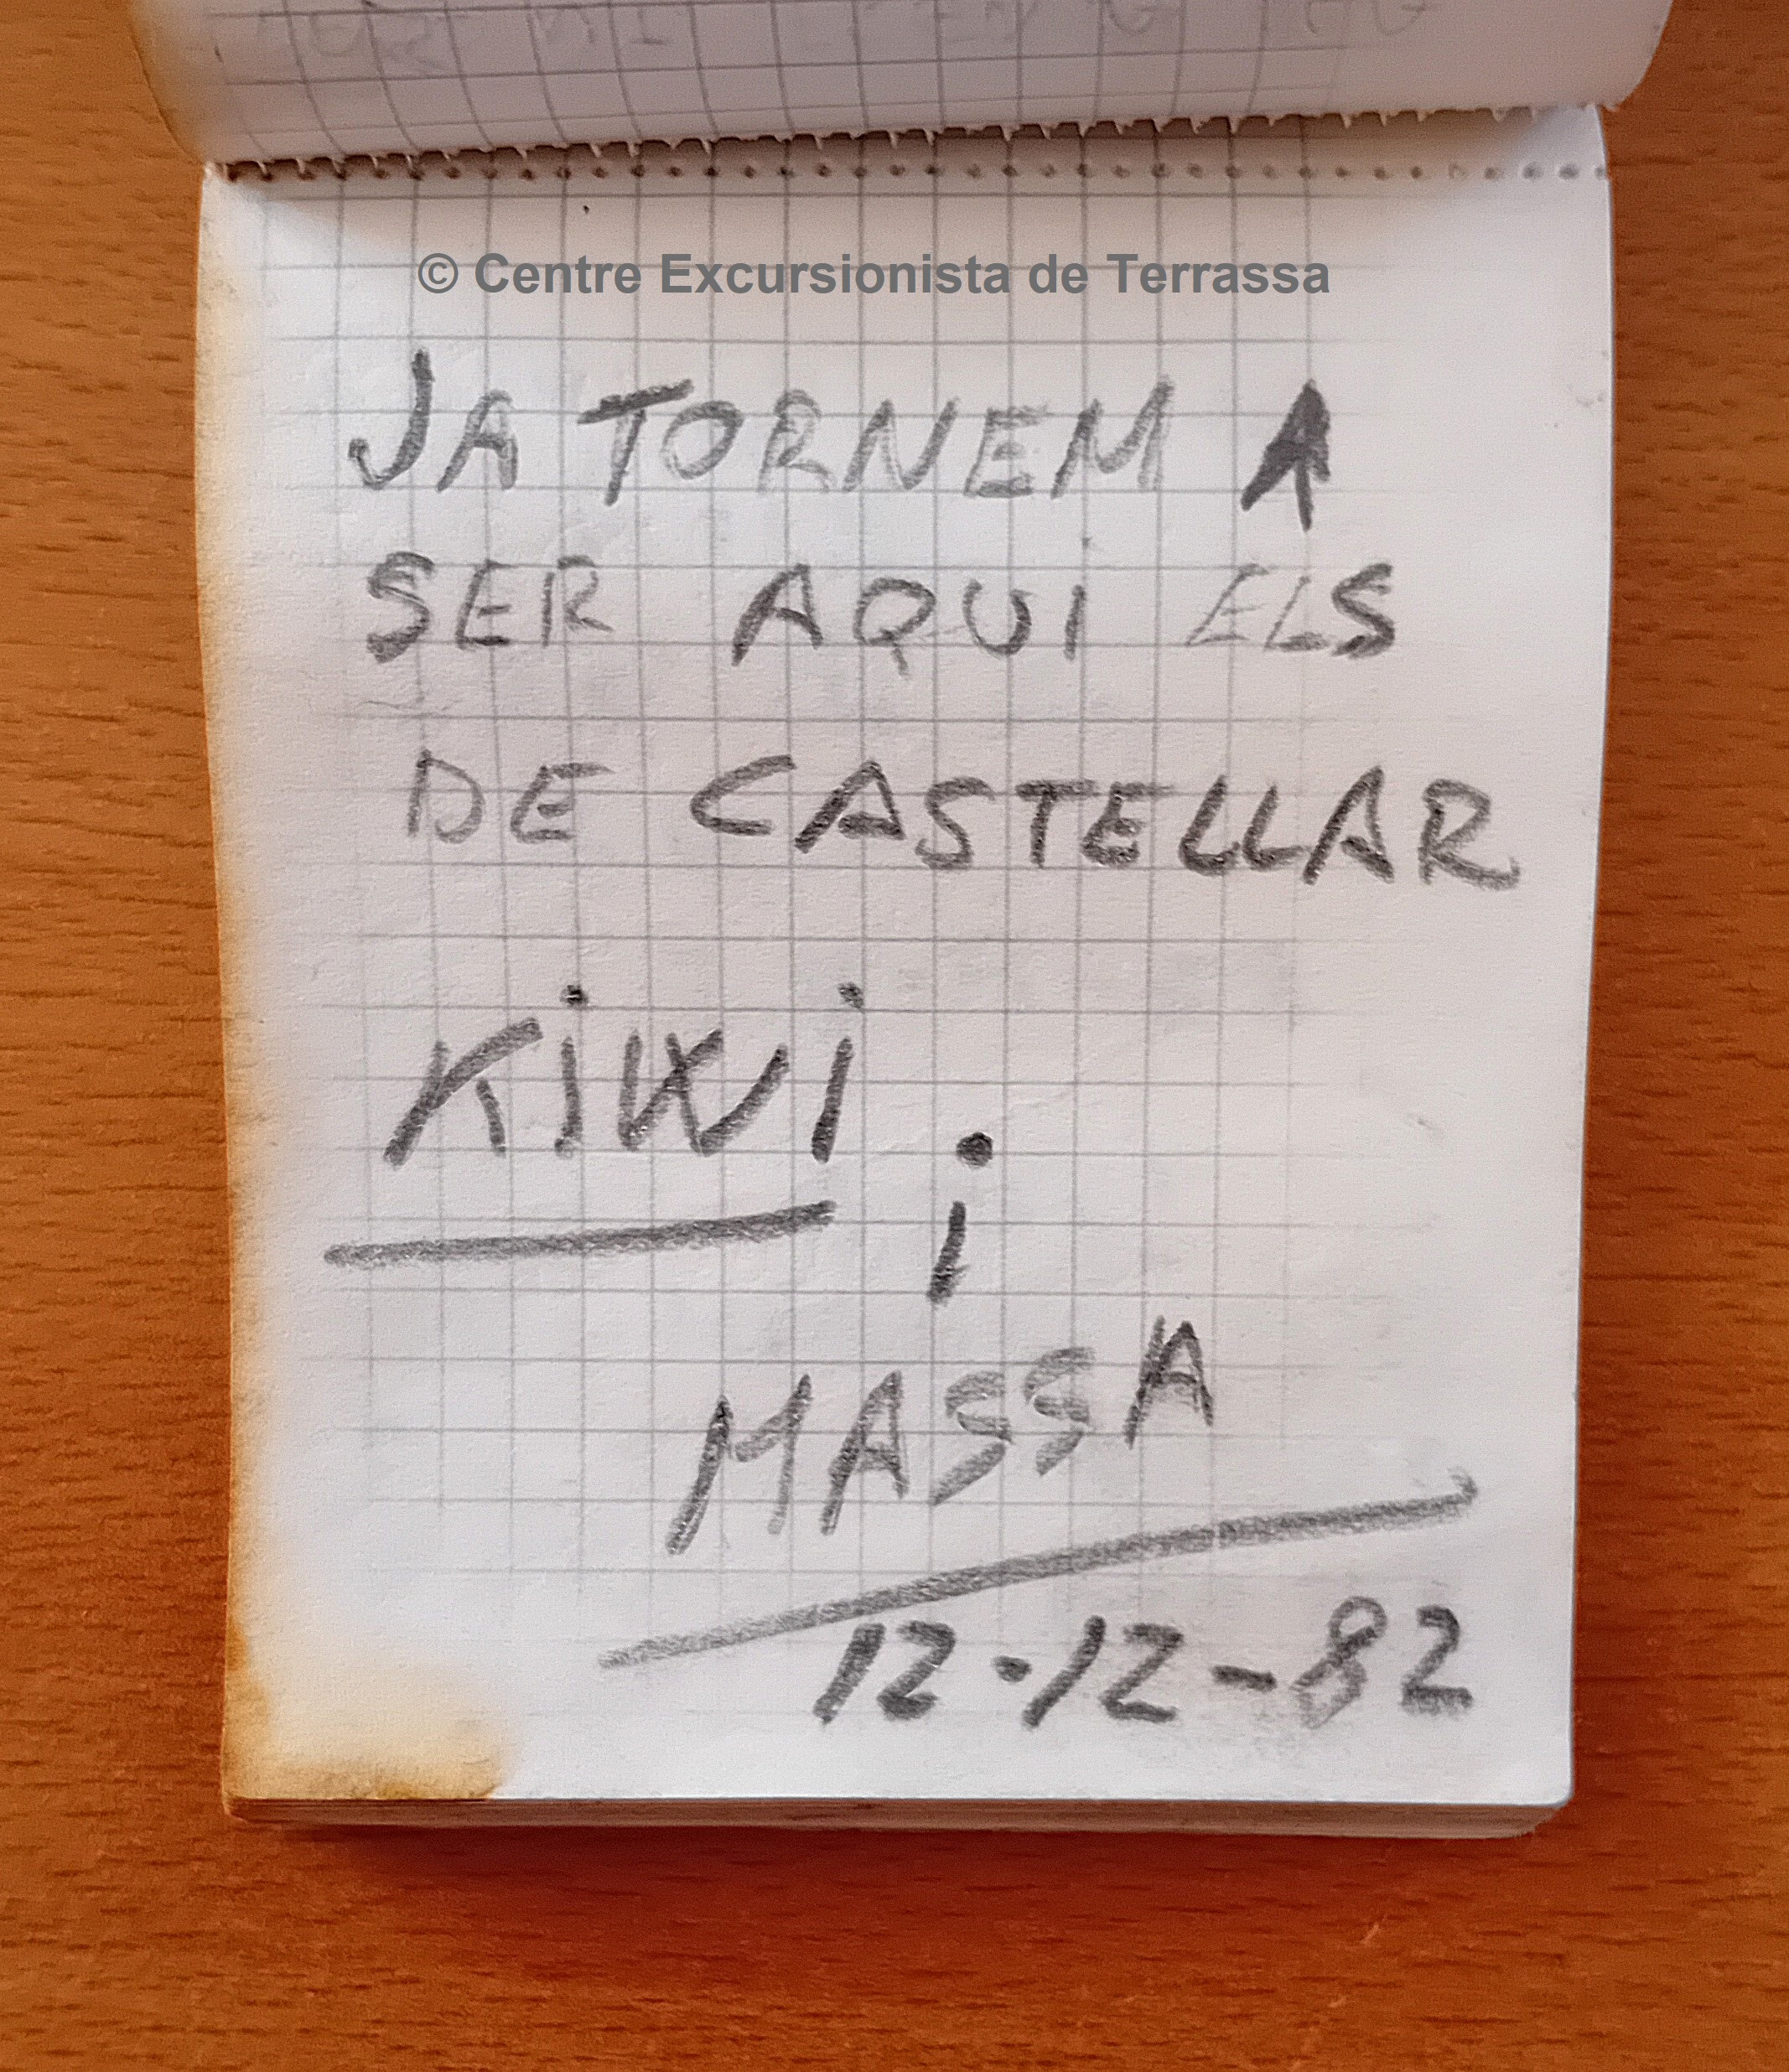 © Centre Excursionista de Terrassa
JA TORNEM A
SER AQUI ELS
DE CASTELLAR
KiWi
i
MASSA
12·12-82